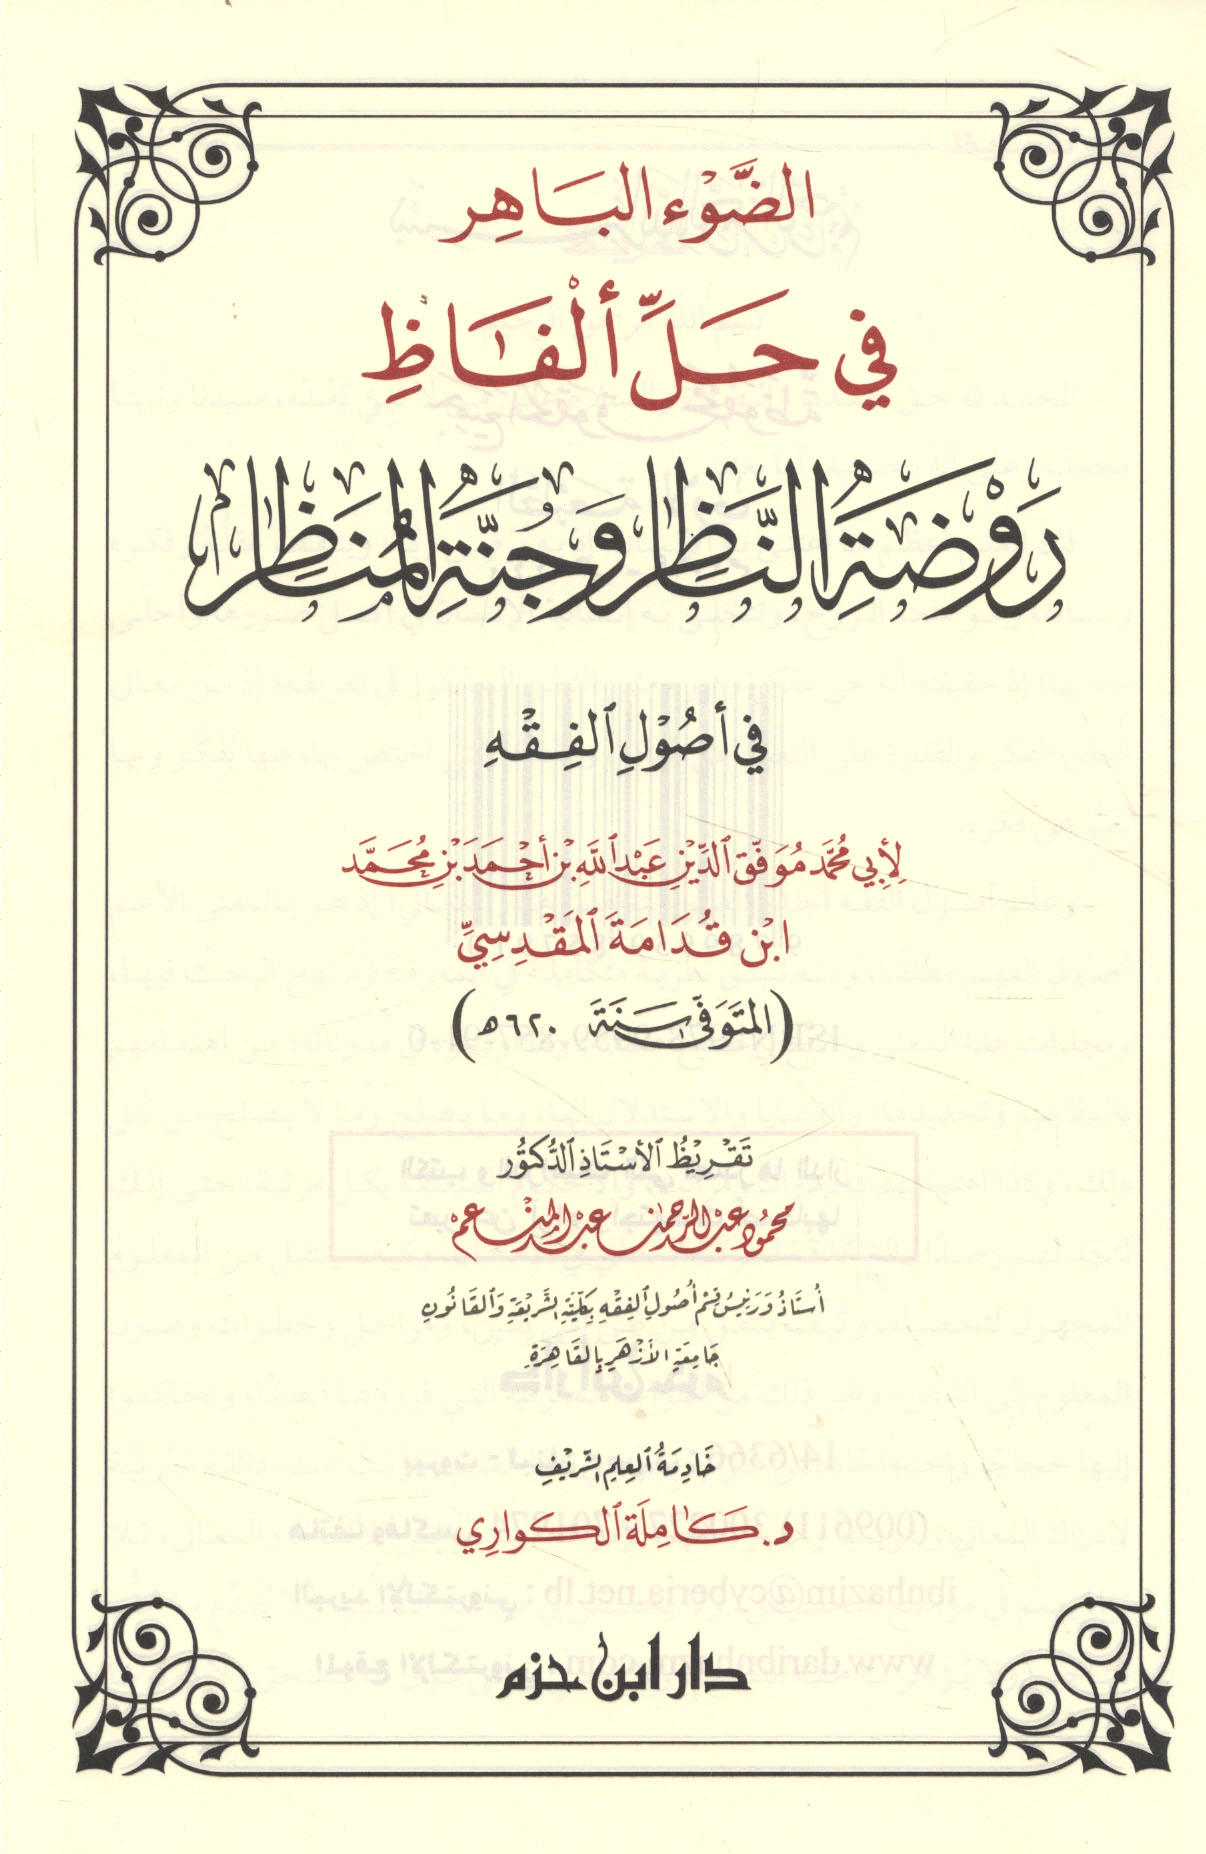 الضَّوْء البَاهِر
في حَلِّ ألْفَاظِ
رَوْضَةِ النَّاظِر وَجُنَّةِ المُنَاظِر
في أصُوْلِ الفِقْهِ
لِأبِي مُحَمَّد مُوَفَّق الدِّيْنِ عَبْد اللهِ بْن أحْمَد بْنِ مُحَمَّد
ابْن قُدَامَةَ المَقْدِسِيِّ
(المتَوَفَّى سَنَةَ ٦٢٠هـ)
تَقْرِيْظُ الأسْتَاذِ الدُّكتُوْر
محمُوْد عَبْد الرَّحمن عَبْد المنْعم
أُسْتَاذُ وَرَئِيسُ قِسْم أصُولِ الفِقْهِ بِكُلِّيَّةِ الشَّرِيْعَةِ وَالقَانُونِ
جَامِعَةِ الأزْهَرِ بِالقَاهِرَةِ
خَادِمَةُ العِلمِ الشَّرِيْفِ
د. كَامِلَة الكواري
دار ابن حزم